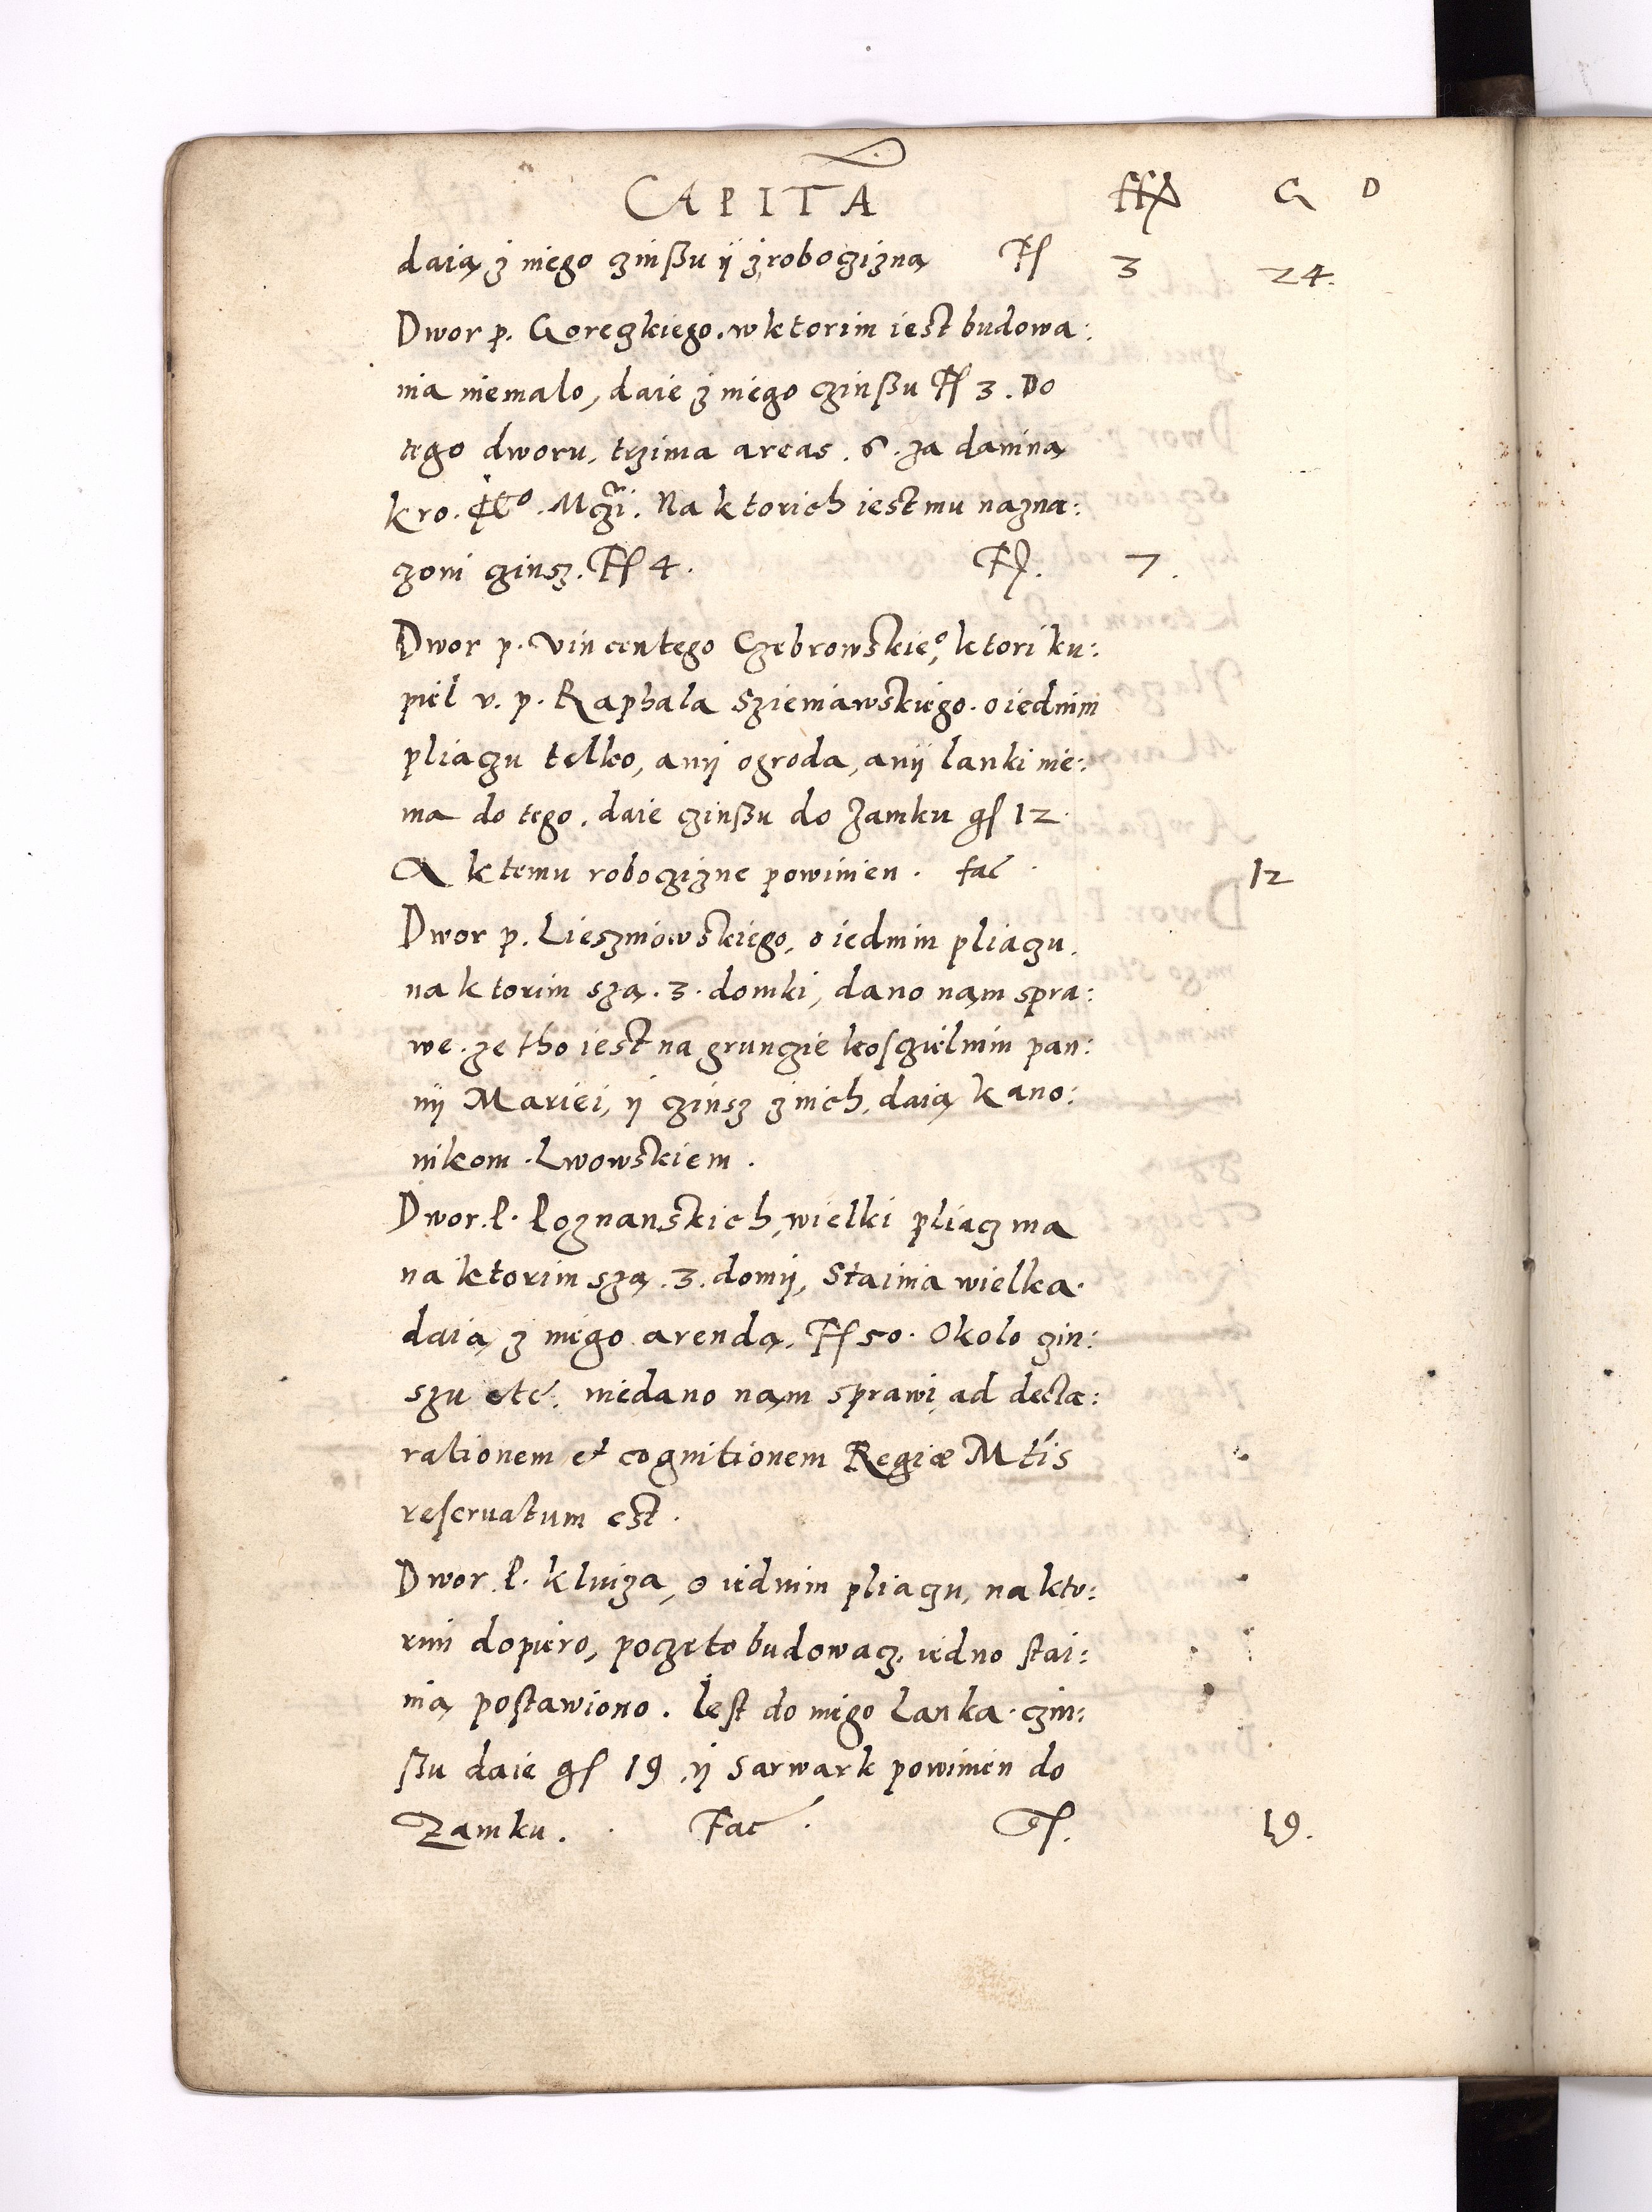 CAPITA ffl G D
daią z niego czinßu ÿ z robocizną Ff 3 24.
Dwor p. Goreczkiego. w ktorim iest budowa:
nia niemalo, daie z niego czinßu Ff 3. Do
tego dworu, trzima areas. 6. za daniną
kro. Mczi. Na ktorich iest mu nazna:
czoni czinsz. Ff 4. Ff. 7.
Dwor p. Vincentego Czebrowskie°, ktori ku:
piel v. p. Raphala Szieniawskiego. o iednim
pliaczu telko, anÿ ogroda, anÿ lanki nie:
ma do tego. daie czinßu do Zamku gf 12.
A k temu robociznę powinien. fac. 12
Dwor p. Lieszniowskiego, o iednim pliaczu,
na ktorim szą. 3. domki, dano nąm spra:
we. ze tho iest na grunczie kosczielnim pan:
nÿ Mariei, ÿ czinsz z nich, daią kano:
nikom. Lwowskiem.
Dwor. P. Poznanskich, wielki pliacz ma
na ktorim szą. 3. domÿ, Stainia wielka.
daią z niego arendą. Ff 50. Okolo czin:
szu etc. niedano nąm sprawi, ad decla:
rationem et cognitionem Regiæ Mtis
reseruatum est.
Dwor. P. Kluiza, o iednim pliaczu, na kto:
rim dopiero, poczeto budowacz, iedno stai:
nią postawiono. Iest do niego Lanka. czin:
ßu daie gf 19, ÿ Sarwark powinien do
Zamku. Fac. Gf. 19.